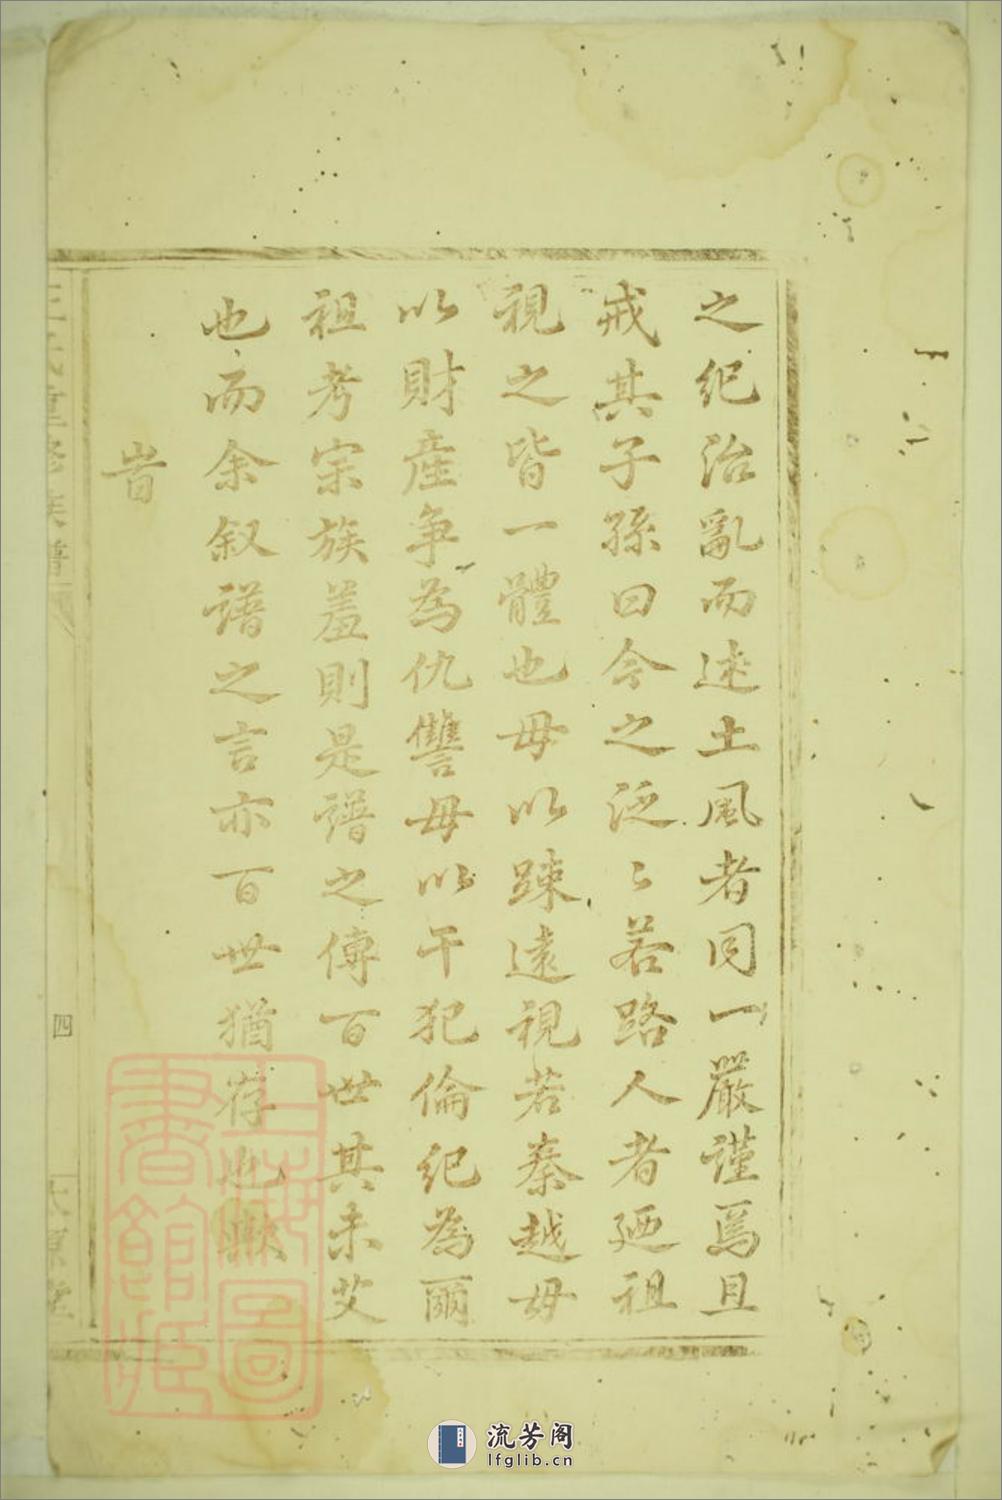 之纪治亂而述土風者同一嚴谨焉且
戒其子孫曰今之泛〻若路人者廼祖
視之皆一體也毋以踈遠視若秦越毋
以財產争為仇讐毋以干犯倫紀為爾
祖考宗族羞則是譜之傳百世其未艾
也而余叙譜之言亦百世猶存也歟
旹
王氏重修族譜
四
太原堂
上海圖書館藏
流芳阁
lfglib.cn